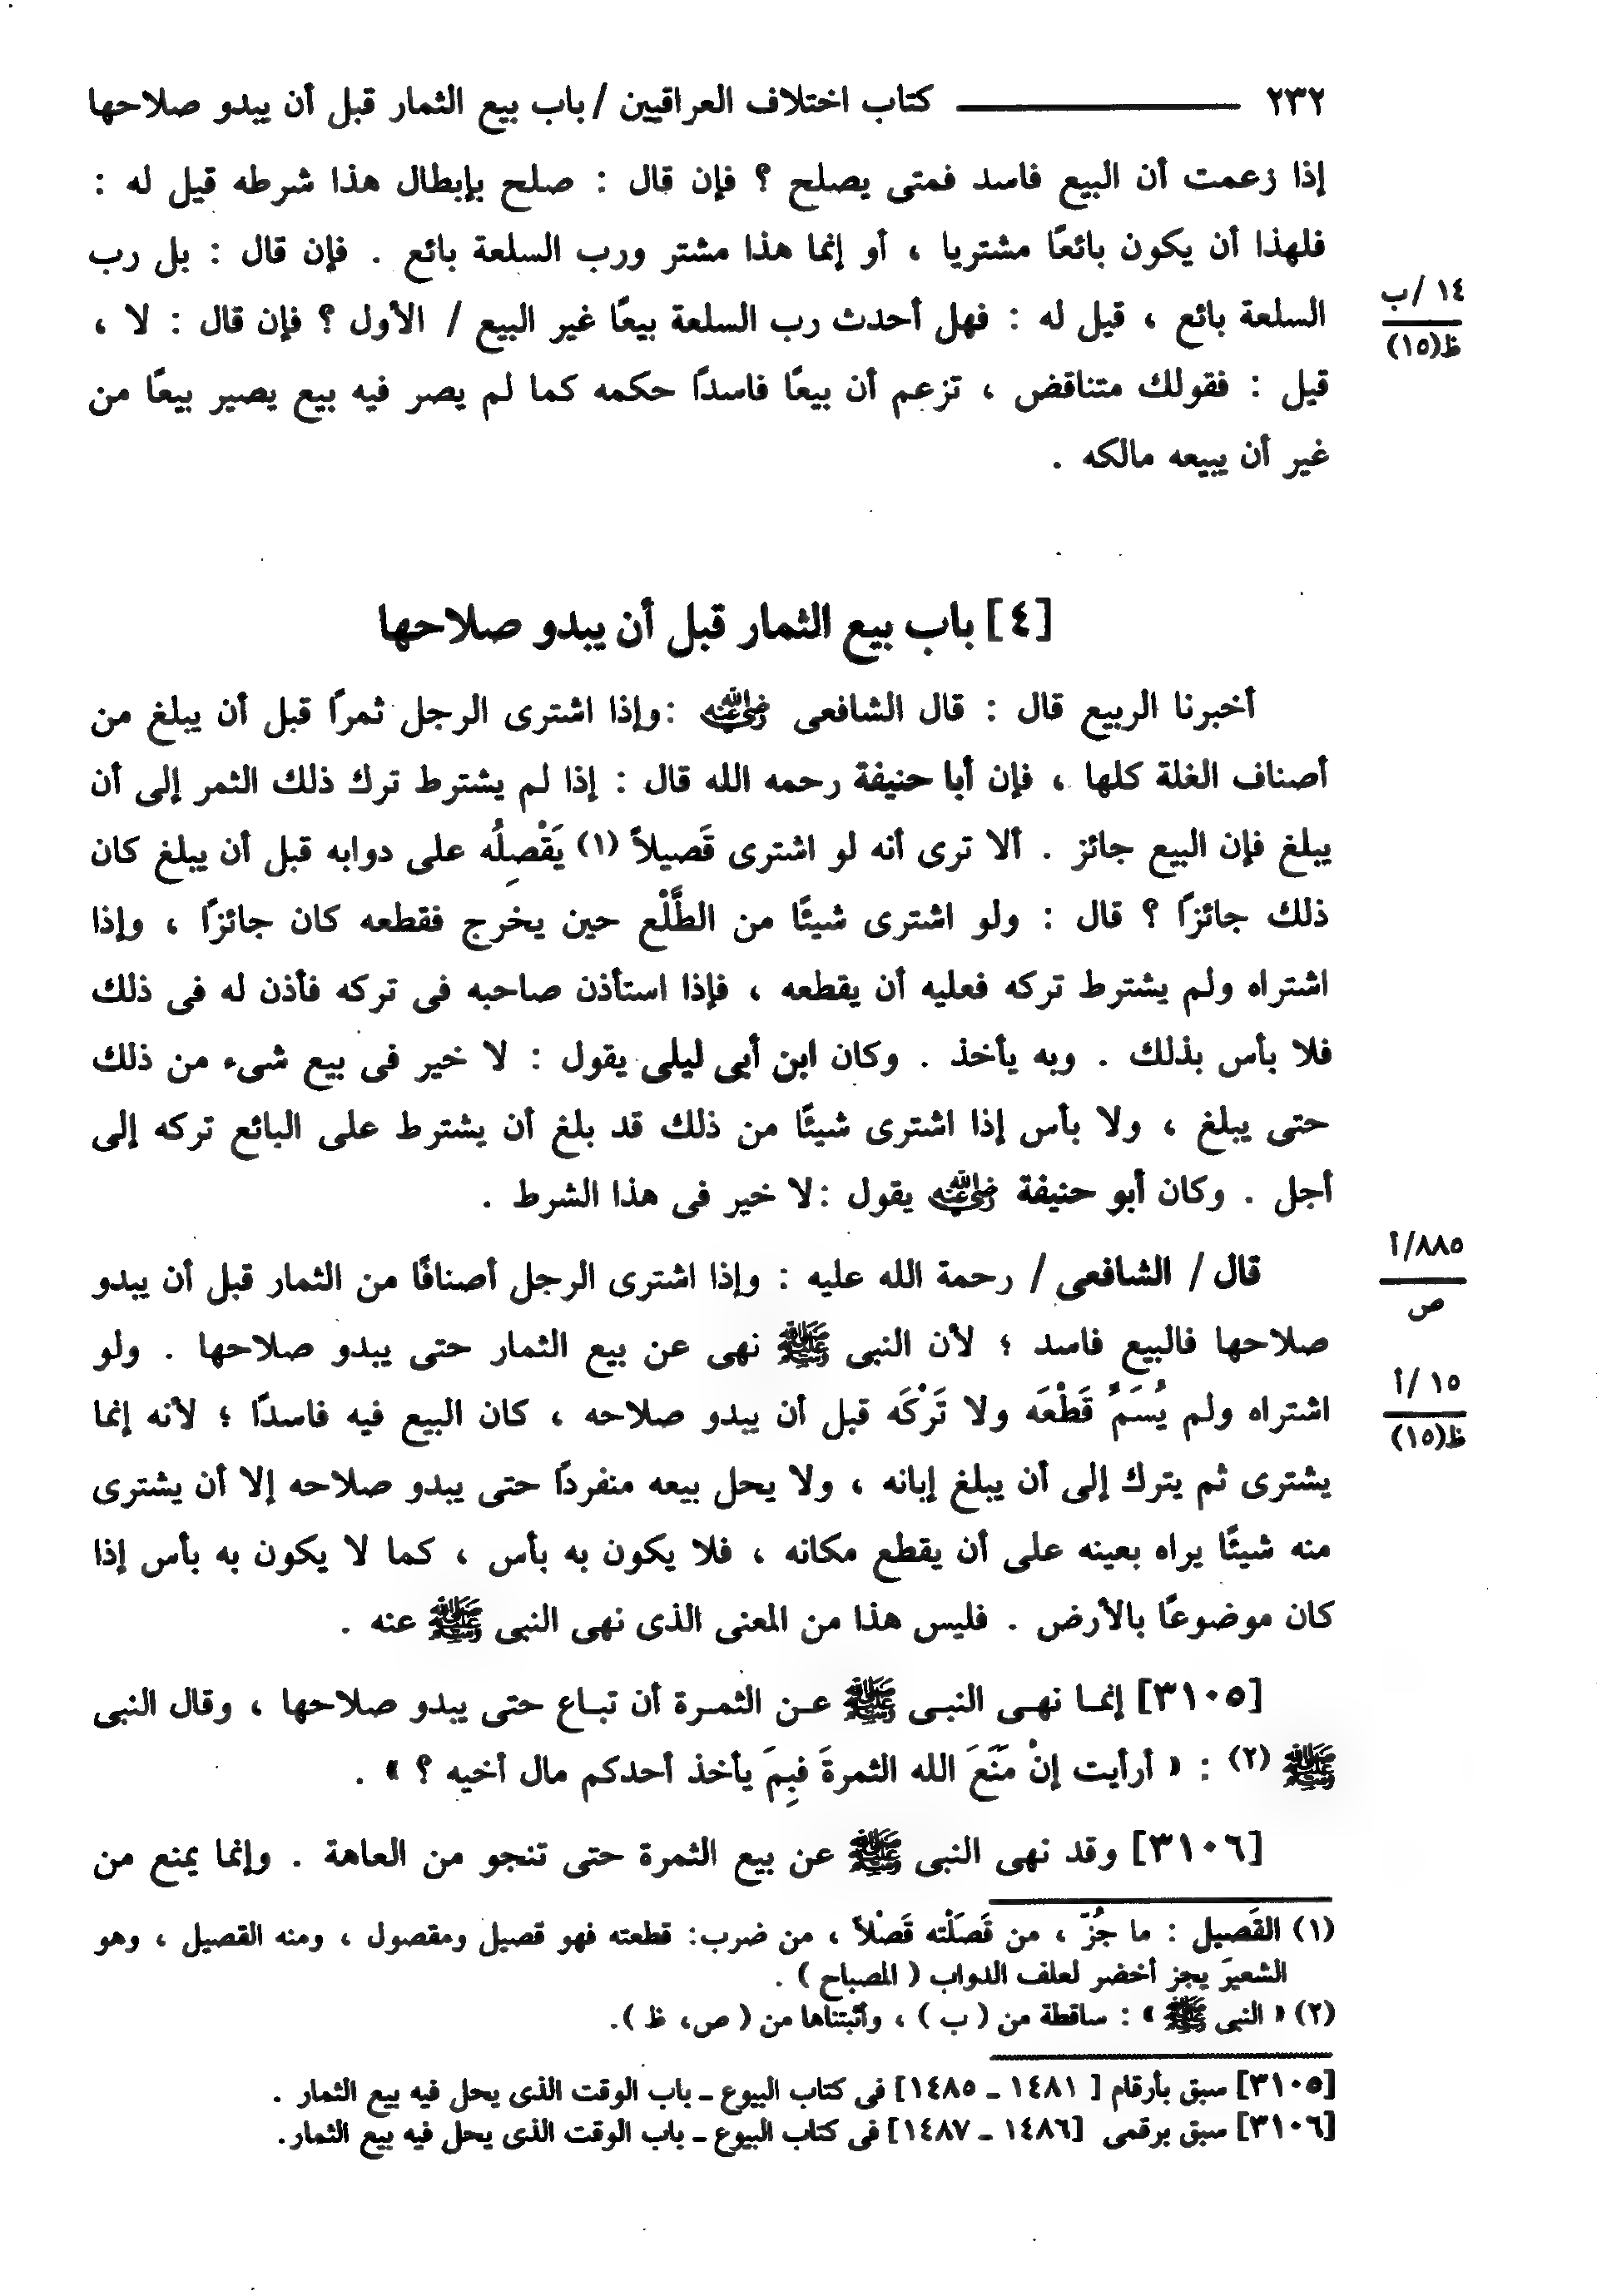 ٢٣٢ كتاب اختلاف العراقيين / باب بيع الثمار قبل أن يبدو صلاحها
إذا زعمت أن البيع فاسد فمتى يصلح ؟ فإن قال : صلح بإبطال هذا شرطه قيل له :
فلهذا أن يكون بائعًا مشتريا ، أو إنما هذا مشتر ورب السلعة بائع . فإن قال : بل رب
السلعة بائع ، قيل له : فهل أحدث رب السلعة بيعًا غير البيع / الأول ؟ فإن قال : لا ،
١٤ /ب
ظ(١٥)
قيل : فقولك متناقض ، تزعم أن بيعًا فاسدًا حكمه كما لم يصر فيه بيع يصير بيعًا من
غير أن يبيعه مالكه .
[٤] باب بيع الثمار قبل أن يبدو صلاحها
أخبرنا الربيع قال : قال الشافعى رضي الله عنه :وإذا اشترى الرجل ثمرًا قبل أن يبلغ من
أصناف الغلة كلها ، فإن أبا حنيفة رحمه الله قال : إذا لم يشترط ترك ذلك الثمر إلى أن
يبلغ فإن البيع جائز . ألا ترى أنه لو اشترى قَصيلاً (١) يَقْصِلُه على دوابه قبل أن يبلغ كان
ذلك جائزًا ؟ قال : ولو اشترى شيئًا من الطَّلْع حين يخرج فقطعه كان جائزًا ، وإذا
اشتراه ولم يشترط تركه فعليه أن يقطعه ، فإذا استأذن صاحبه فى تركه فأذن له فى ذلك
فلا بأس بذلك . وبه يأخذ . وكان ابن أبى ليلى يقول : لا خير فى بيع شىء من ذلك
حتى يبلغ ، ولا بأس إذا اشترى شيئًا من ذلك قد بلغ أن يشترط على البائع تركه إلى
أجل . وكان أبو حنيفة رضي الله عنه يقول :لا خير فى هذا الشرط .
قال / الشافعى / رحمة الله عليه : وإذا اشترى الرجل أصنافًا من الثمار قبل أن يبدو
٨٨٥/أ
ص
صلاحها فالبيع فاسد ؛ لأن النبى ﷺ نهى عن بيع الثمار حتى يبدو صلاحها . ولو
١٥ /أ
ظ(١٥)
اشتراه ولم يُسَمِّ قَطْعَه ولا تَرْكَه قبل أن يبدو صلاحه ، كان البيع فيه فاسدًا ؛ لأنه إنما
يشترى ثم يترك إلى أن يبلغ إبانه ، ولا يحل بيعه منفردًا حتى يبدو صلاحه إلا أن يشترى
منه شيئًا يراه بعينه على أن يقطع مكانه ، فلا يكون به بأس ، كما لا يكون به بأس إذا
كان موضوعًا بالأرض . فليس هذا من المعنى الذى نهى النبى ﷺ عنه .
[٣١٠٥] إنما نهى النبى ﷺ عن الثمرة أن تباع حتى يبدو صلاحها ، وقال النبى
ﷺ (٢) : « أرأيت إنْ مَنَعَ الله الثمرةَ فبِمَ يأخذ أحدكم مال أخيه ؟ » .
[٣١٠٦] وقد نهى النبى ﷺ عن بيع الثمرة حتى تنجو من العاهة . وإنما يمنع من
(١) القَصيل : ما جُزّ ، من قَصَلْته قَصْلاً ، من ضرب: قطعته فهو قصيل ومقصول ، ومنه القصيل ، وهو
الشعيرَ يجز أخضر لعلف الدواب ( المصباح ) .
(٢) « النبى ﷺ » : ساقطة من ( ب ) ، وأثبتناها من ( ص، ظ ).
[٣١٠٥] سبق بأرقام [ ١٤٨١ ـ ١٤٨٥] فى كتاب البيوع ـ باب الوقت الذى يحل فيه بيع الثمار .
[٣١٠٦] سبق برقمى [١٤٨٦ ـ ١٤٨٧] فى كتاب البيوع ـ باب الوقت الذى يحل فيه بيع الثمار.